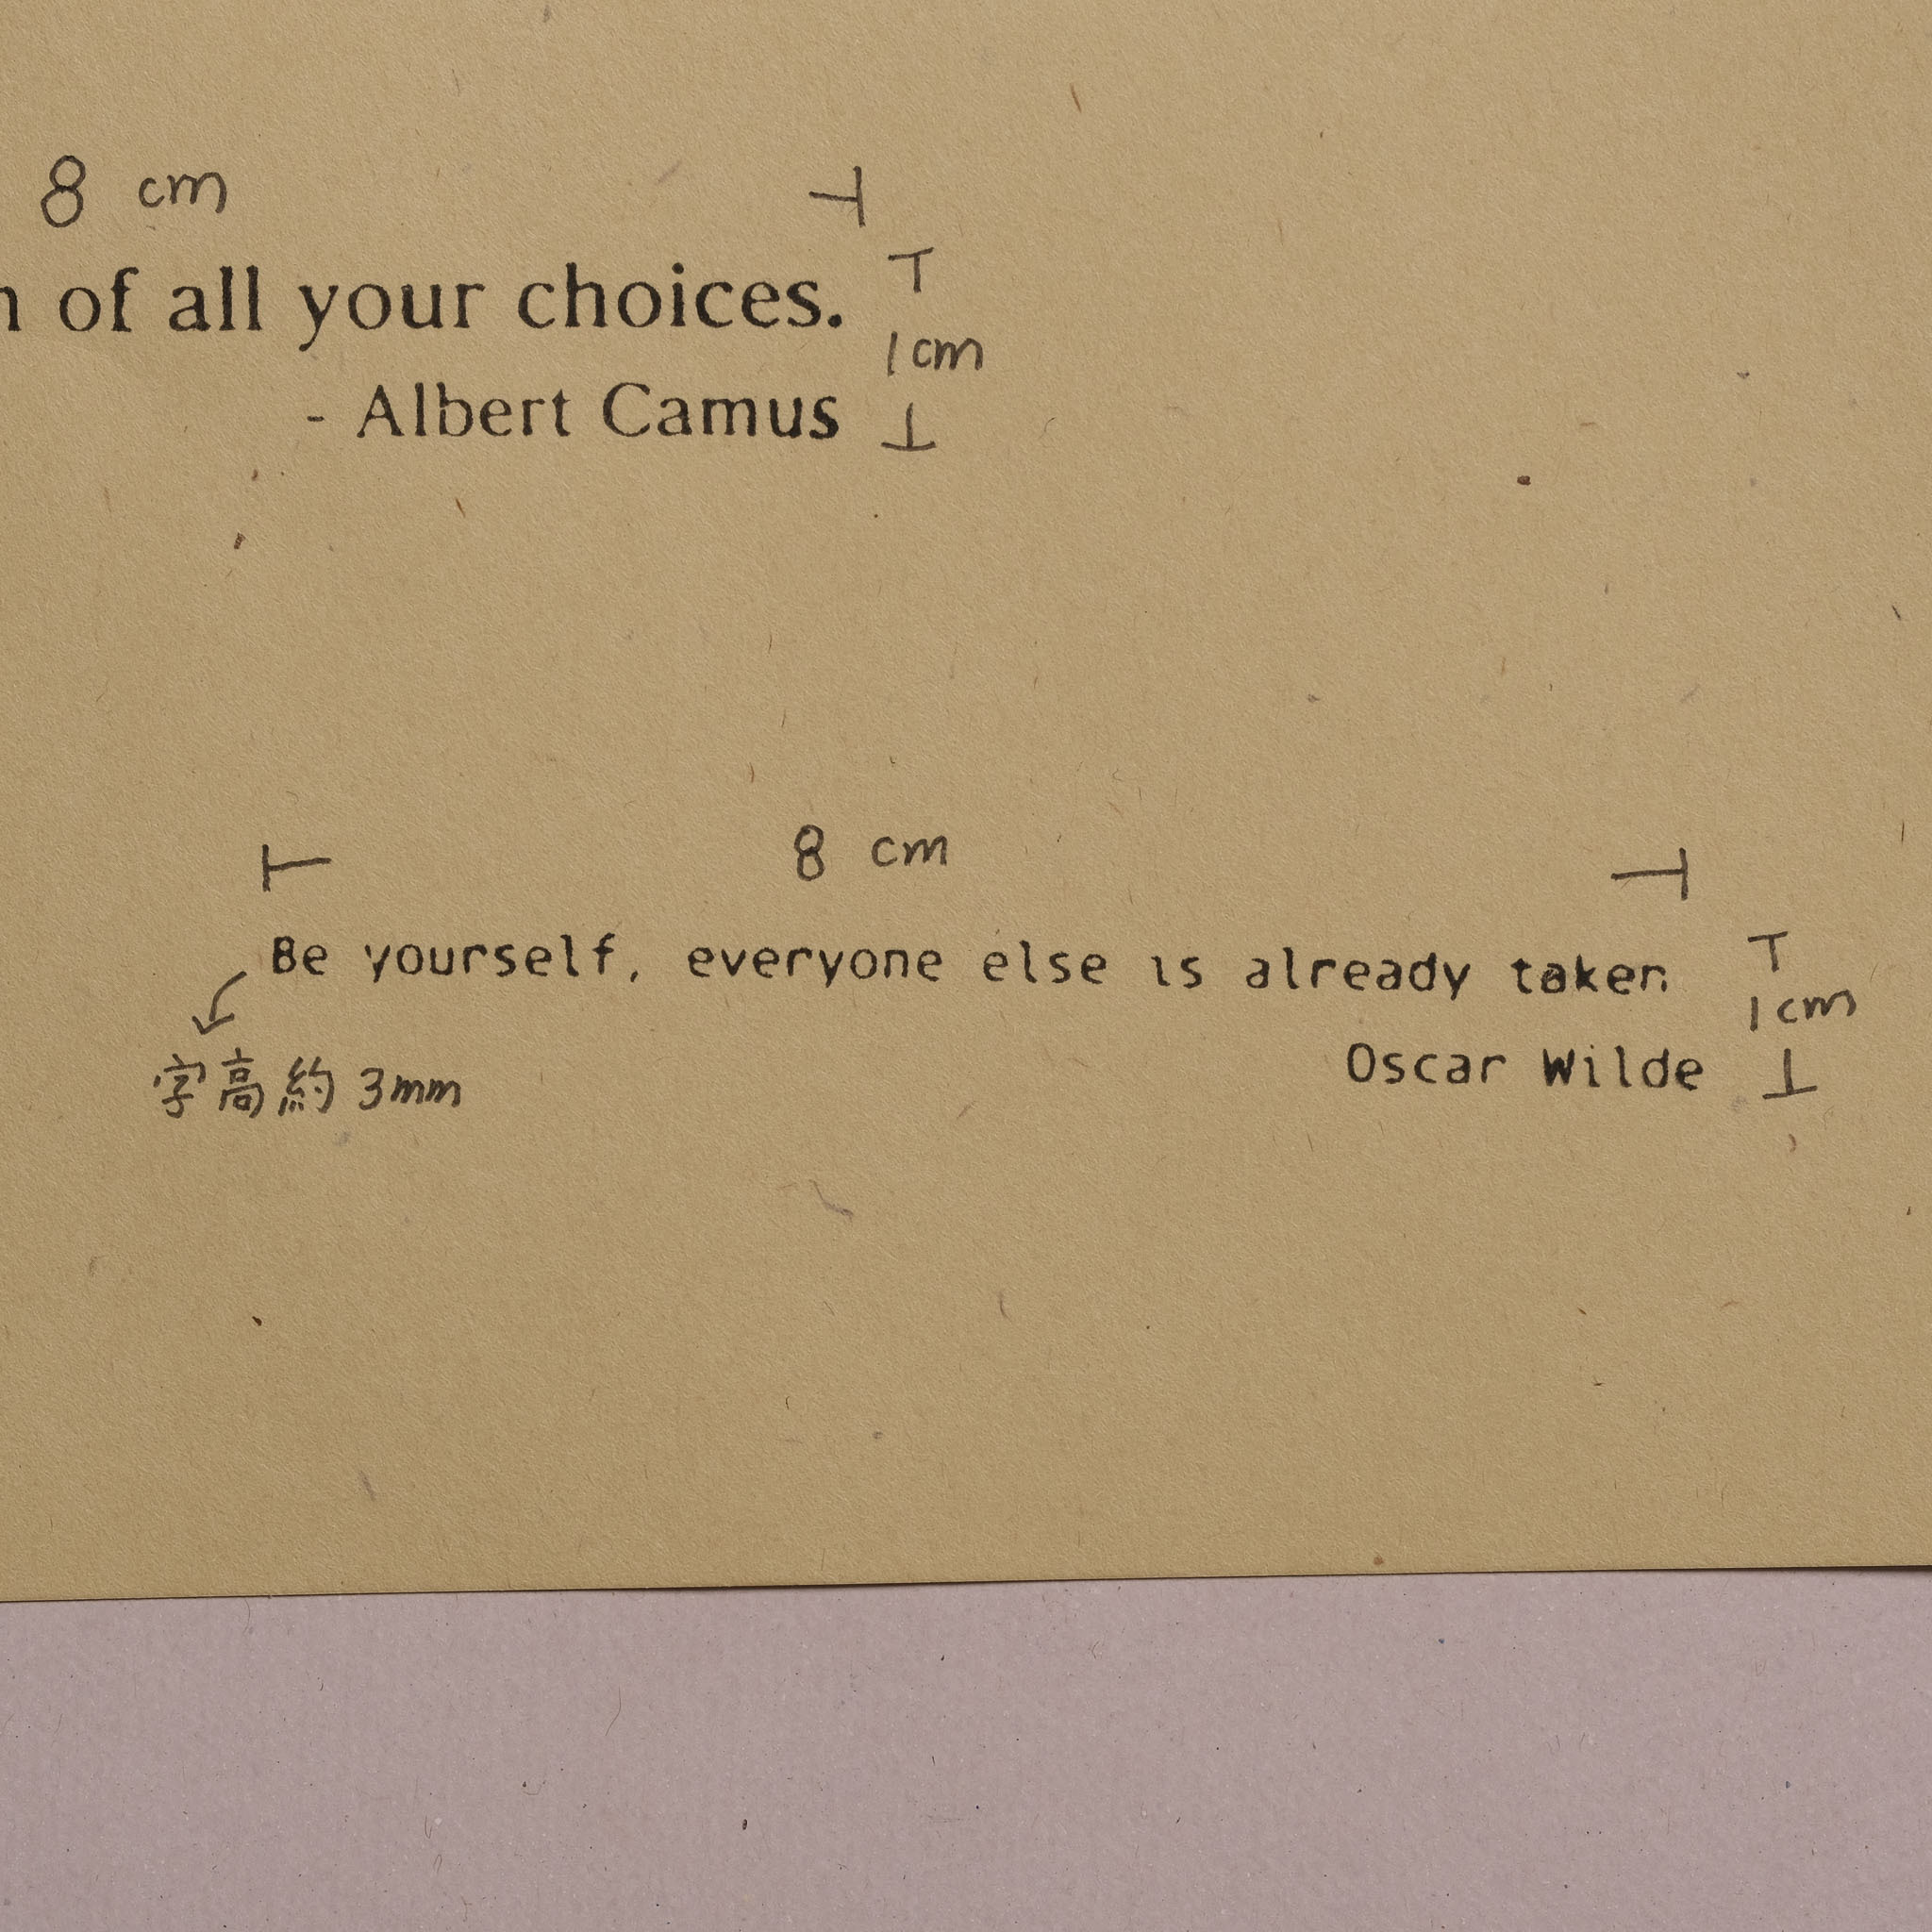 8 cm
of all your choices.
1cm
- Albert Camus
8 cm
Be yourself, everyone else is already taken
1cm
Oscar Wilde
字高約 3mm